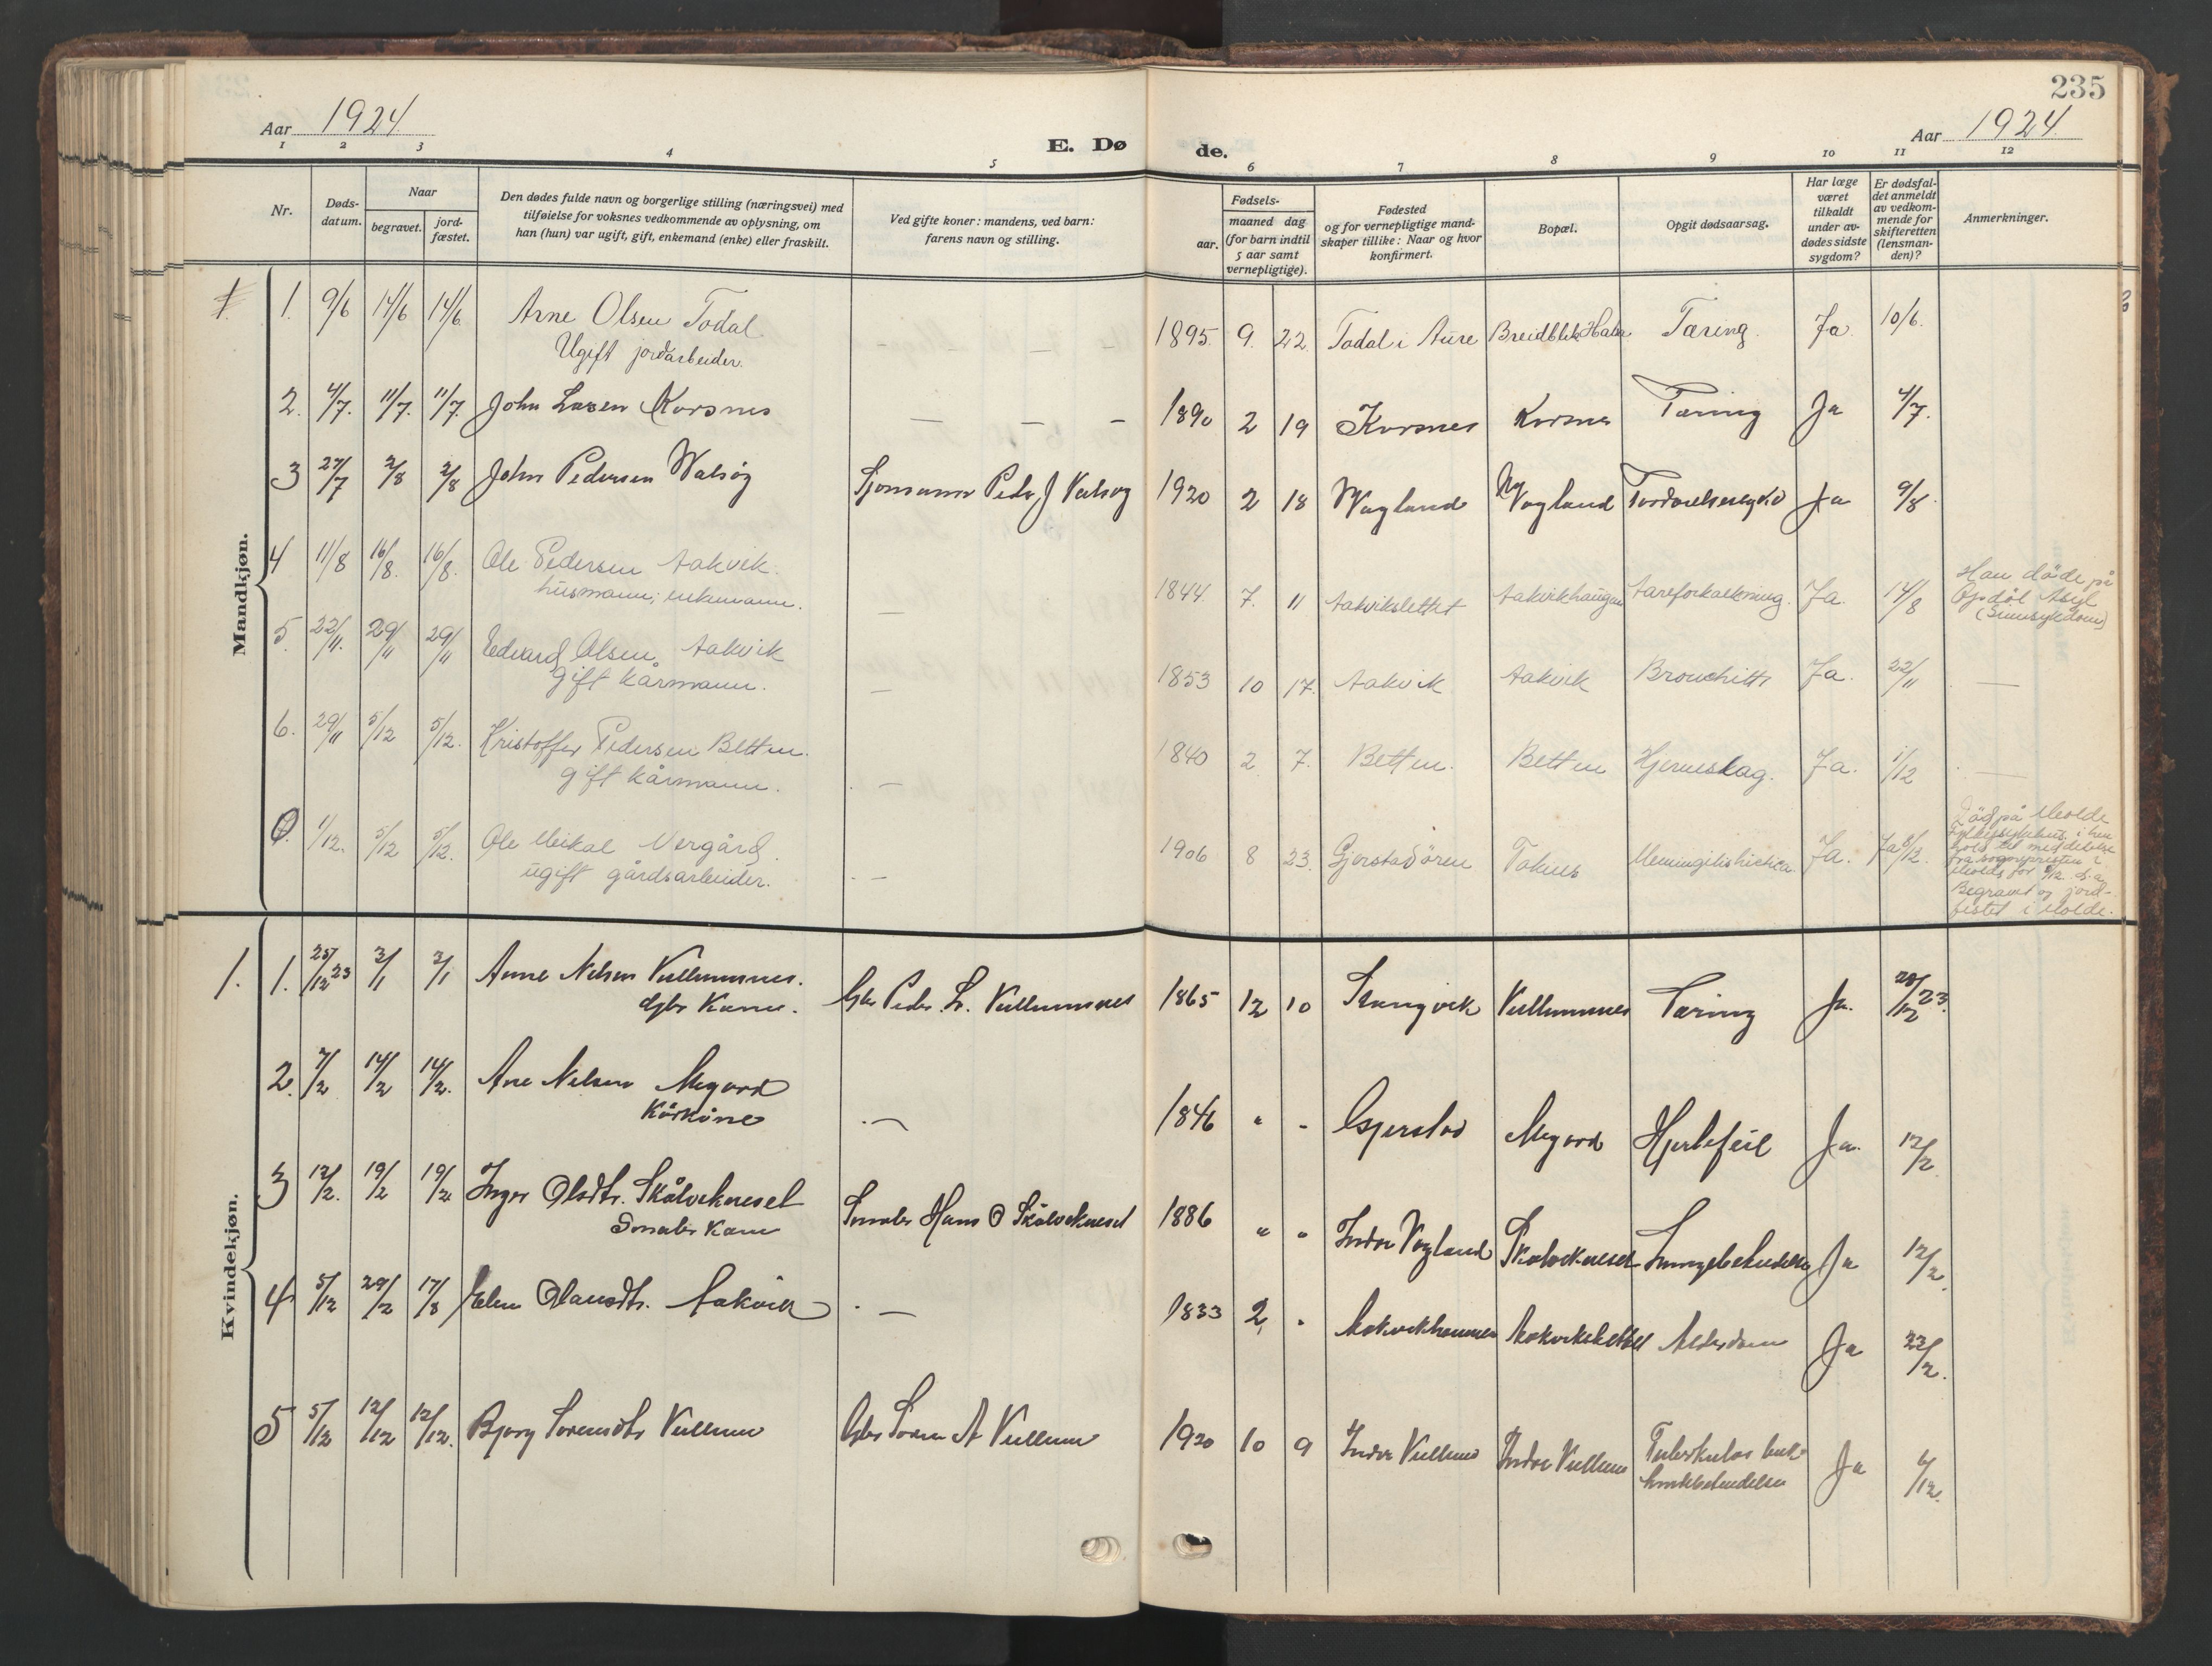 235
Aar 1924
E. Døde.
Aar 1924
1 2 3 4 5 6 7 8 9 10 11 12
Nr.
Døds-
datum.
Naar
begravet.
jord-
fæstet.
Den dødes fulde navn og borgerlige stilling (næringsvei) med
tilføielse for voksnes vedkommende av oplysning, om
han (hun) var ugift, gift, enkemand (enke) eller fraskilt.
Ved gifte koner: mandens, ved barn:
farens navn og stilling.
Fødsels-
aar.
maaned dag
(for barn indtil
5 aar samt
vernepligtige).
Fødested
og for vernepligtige mand-
skaper tillike: Naar og hvor
konfirmert.
Bopæl.
Opgit dødsaarsag.
Har læge
været
tilkaldt
under av-
dødes sidste
sygdom?
Er dødsfal-
det anmeldt
av vedkom-
mende for
skifteretten
(lensman-
den)?
Anmerkninger.
Mandkjøn.
1. 9/6 14/6 14/6 Arne Olsen Todal
Ugift jordarbeider.
— — — — 1895. 9. 22 Todal i Aure Breidblik Halsa Tæring. Ja. 10/6.
2. 4/7. 11/7. 11/7. John Larsen Korsnes — — — 1890 2 19 Korsnes Korsnes Tæring Ja 4/7.
3 27/7 2/8 2/8 John Pedersen Valsøy Sjømann Peder J Valsøy 1920 2 18 Vagland Vagland Ja 9/8.
4 11/8 16/8. 16/8. Ole Pedersen Aakvik.
husmann; enkemann. — 1844. 7. 11 Aakvikslettet Aakvikhaugen Aareforkalkning. Ja. 12/8
Han döde på
Opdöl Asyl
(Sinnsykdom)
5. 22/11. 29/11 29/11 Edvard Olsen Aakvik
gift kårmann. — 1853 10 17. Aakvik Aakvik Bronchitt Ja. 22/11 —
6. 29/11 5/12 5/12. Kristoffer Pedersen Betten.
gift kårmann. — 1840 2 7. Betten. Betten Hjerneslag. Ja. 1/12 —
1/12. 5/12 5/12. Ole Meikal Nergård.
ugift gårdsarbeider. — 1906 8 23. Gjerstadören Ja.
Död på Molde
Begravet og jord-
festet i Molde.
Kvindekjøn.
1. 1. 25/12 23 3/1 3/1 Anne Nelsen Vullumsnes.
Gbr Kone. Gbr Peder L. Vullumsnes 1865 12 10 Stangvik Vullumsnes Tæring Ja. 28/12 23.
2. 7/2 14/2 14/2. Ane Nelsen Megard
Kårkone — 1846 " - Gjerstad Megard Hjertefeil Ja. 12/2
3 12/2. 19/2 19/2 Inger Olsdtr. Skålvikneset
Småbr Kone Småbr Hans O Skålvikneset 1886 " " Indre Vagland Skålvikneset Lungebetendelse Ja 12/2.
4 5/12 29/2 17/3 Elen Olausdtr. Aakvik — 1833 2, " Aakvikhammer Aakvikslettet Alderdom Ja 22/2.
5 5/12 12/12 12/12. Bjorg Sørensdtr Vullum Gbr Søren A Vullum 1920 10 9 Indre Vullum Indre Vullum Tuberkuløs buk
hindebetendelse Ja 6/12.